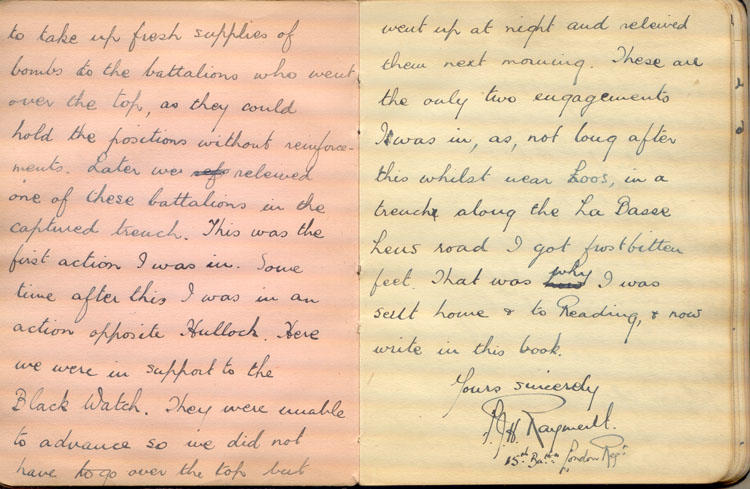 to take up fresh supplies of
bombs to the battalions who went
over the top, as they could
hold the positions without reinforce-
ments. Later we releived
one of these battalions in the
captured trench. This was the
first action I was in. Some
time after this I was in an
action opposite Hulloch. Here
we were in support to the
Black Watch. They were unable
to advance so we did not
have to go over the top but
went up at night and releived
them next morning. These are
the only two engagements
I was in, as, not long after
this whilst near Loos, in a
trench along the La Basse
Lens road I got frostbitten
feet. That was why I was
sent home & to Reading, & now
write in this book.
Yours sincerely
Rayment.
15th Battn London Regt.